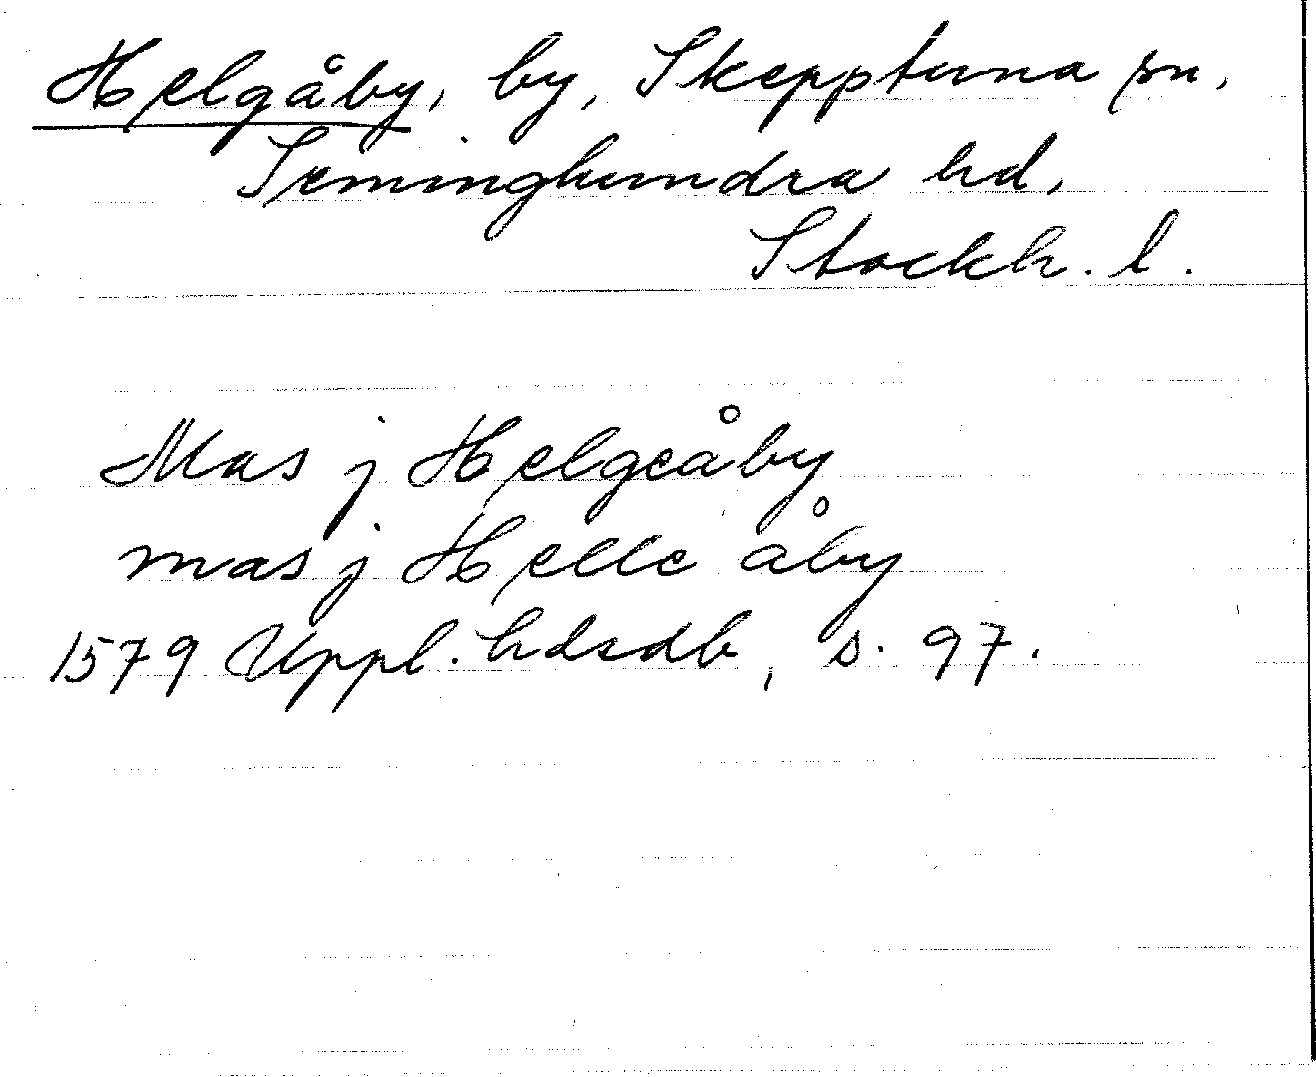 Helgåby, by, Skepptuna sn,
Seminghundra hd,
Stockh. l.
Mas j Helgeåby
mas j Helle åby
1579 Uppl. hdsdb, s. 97.